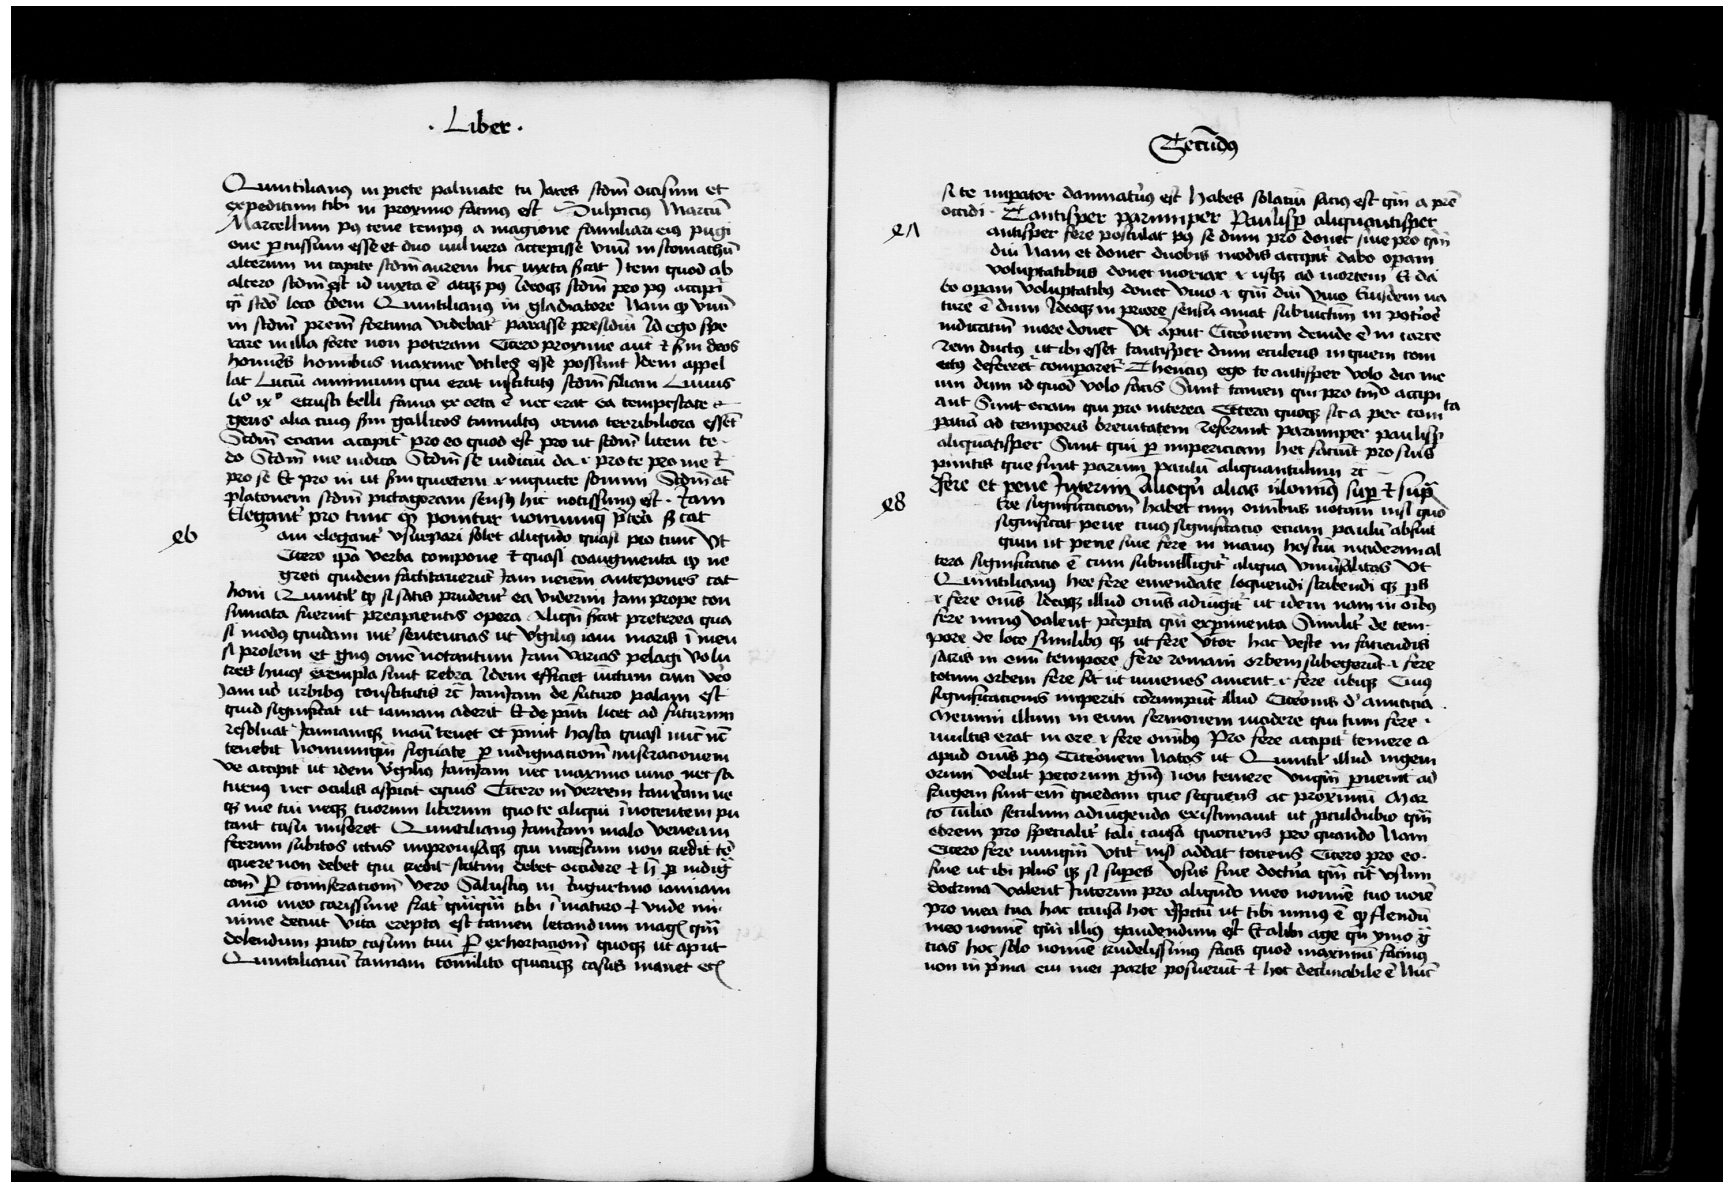 · Liber ·
Quintilianus in piete palmate tu Jaces scdm̄ occisum et
expeditum tibi in proximo facinus est Sulpicius Marcū
Marcellum pꝰ cene tempus a magione familiari eiꝰ pugi
one percussum esse et duo vulnera accepisse vnū in stomachū
alterum in capite scdm̄ aurem hic iuxta sīcat Item quod ab
altero scdm̄ est id iuxta ē atqꝫ pꝰ Ideoqꝫ scdm̄ pro pꝰ accipī
qī scdō loco Idem Quintilianus in gladiatore Nam qꝫ vnū
in scdm̄ prem̄ fortuna videbat᷑ parasse presidiū Id ego spe
rare in illa sorte non poteram Cicero proxime aut̄ et scdm̄ deos
homines hominibus maxime vtiles esse possunt Idem appel
lat Lucium anminum qui erat institutus scdm̄ filiam Liuius
liº ixº etrusci belli fama ex orta ē nec erat ea tempestate
gens alia cuius scdm̄ gallicos tumultus arma terribiliora essēt
Scdm̄ eciam accipit᷑ pro eo quod est pro ut scdm̄ litem te
do Scdm̄ me iudica Scdm̄ se iudiciū da ı pro te pro me et
pro se Et pro in ut scdm̄ quietem ı in quiete somni Scdm̄ at̄
platonem scdm̄ pictagoram sensus hic notissimus est · Iam
Elegant᷑ pro tunc qꝫ ponitur nonnunqꝫ pret̄ea sīcat
e6
am elegant᷑ vsurpari solet aliqn̄do quasi pro tunc vt
Cicero ipā verba compone et quasi coaugmenta qꝫ ne
greci quidem factitauerūt Iam neiem antepones cat
honi Quintil᷑ qꝫ si satis prudent᷑ ea viderim Iam prope con
sumata fuerint precipientis opera Aliqn̄ sīcat preterea qua
si modus quidam int᷑ sentencias ut v᷑gilius iam maris īmen
si prolem et gnꝰ omē notantum Iam varias pelagi volu
cres huiꝰ exempla sunt crebra Idem efficiet iūctum cum vero
Iam ud urbibus constitutis et̄ Iam Iam de futuro palam est
quid significat ut iamiam aderit Et de pn̄ti licet ad futurum
resoluat᷑ Iamiamqꝫ manū tenet et pmit hasta quasi nūc nūc
tenebit Nonnunqꝫ significate per indignacionē miseracionem
ve accipit᷑ ut idem v᷑gilius IamIam nec maxima iuno nec sa
turnus nec oculis aspicit equis Cicero in verrem IamIam ne
qꝫ me tui neqꝫ tuorum liberum quo te aliqui īnocentem pu
tant casu miseret Quintilianus IamIam malo veneam
ferrum subitos ictus improuisaqꝫ qui incestum non credit re
quere non debet qui credit statim debet occidere et h̄ per indig
com̄ Per conmiseracionē vero Salustius in Iugurtino iamiam
anīo meo carissime frat᷑ qm̄qm̄ tibi īmaturo et vnde mi
nime decuit vita erepta est tamen letandum magꝭ qm̄
dolendum puto casum tuū Per exhortacionē quoqꝫ ut aput
Quintilianū Iamiam comilito quicūqꝫ casus manet etꝭ
Secūdus
si te imperator damnatus est habes solaciū satius est qm̄ a prē
occidi · Tantisper parumper Paulisꝑ aliquantisper
e7
antisper fere postulat pꝰ se dum pro donec siue pro qm̄
diu Nam et donec duobus modis accipit᷑ dabo operam
voluptatibus donec moriar ı usqꝫ ad mortem Et da
bo operam voluptatibus donec viuo ı qm̄ diu viuo Eiusdem na
ture ē dum Ideoqꝫ in priore sensu amat subiūctiuū in postiore
indicatiuū more donec Vt aput Ciceronem deinde ē in carce
rem ductus ut ibi esset tantisper dum eculeus in quem com
ectus deferret᷑ compararet᷑ Therencius ego te antisper volo dici me
um dum id quod volo facis Sunt tamen qui pro tm̄o accipi
ant Sunt eciam qui pro interea Cetera quoqꝫ sic a per com ta
pacia ad temporis breuitatem referunt parumper paulisꝑ
aliquātisper Sunt qui per impericiam hec faciūt pro suis
primitis que sunt parum paulū aliquantulum et̄
Fere et pene Interim Alioqn̄ alias nlominꝰ suꝑ et supra
e8
Ere significacionem habet cum omnibus notam nisi quo
significat pene cuius significacio eciam paulū absunt
quin ut pene siue fere in manus hostiū inciderim al
tera significacio ē cum subintelligit᷑ aliqua vniuersalitas Vt
Quintilianus hec fere emendate loquendi scribendi qꝫ ꝑs
ı fere omīs Ideoqꝫ illud omīs adiūgit᷑ ut idem nam in oībus
fere minus valent precepta qm̄ experimenta Similit᷑ de tem
pore de loco similibus qꝫ ut fere vtor hac veste in faciendis
sacris in omī tempore fere romani orbem subegerūt ı fere
totum orbem fere fit ut iuuenes ament ı fere ubiqꝫ Cuius
significacionis imperiti corrumpūt illud Ciceronis d᷑ amicicia
Memini illum in eum sermonem incidere qui tum fere
multis erat in ore ı fere omnibus Pro fere accipit᷑ temere a
apud omīs pꝰ Ciceronem Natos ut Quintil᷑ illud ingeni
orum velut precocum gen̄us non temere vnqꝫ peruenit ad
frugem sunt em̄ quedam que sequens ac proximū Mar
co Tulio seculum adiungenda existimauit ut perquimbio qm̄
obrem pro specialit᷑ tali causa quociens pro quando Nam
Cicero fere nunqm̄ vtit᷑ nisi addat tociens Cicero pro eo
siue ut ibi plus qꝫ si superes vsus sine doctrina qm̄ citra vsum
doctrina valeat Interim pro aliqn̄do meo nomīe tuo noīe
pro mea tua hac causa hoc respectu ut tibi minus ē qꝫ flendū
meo nomīe qm̄ illius gaudendum est Et alibi age qn̄ ymo g
cias hoc solo nomīe crudelissimus facis quod maximū facinus
non in prima eiꝰ mei parte posuerūt et hoc declinabile ē Nūc